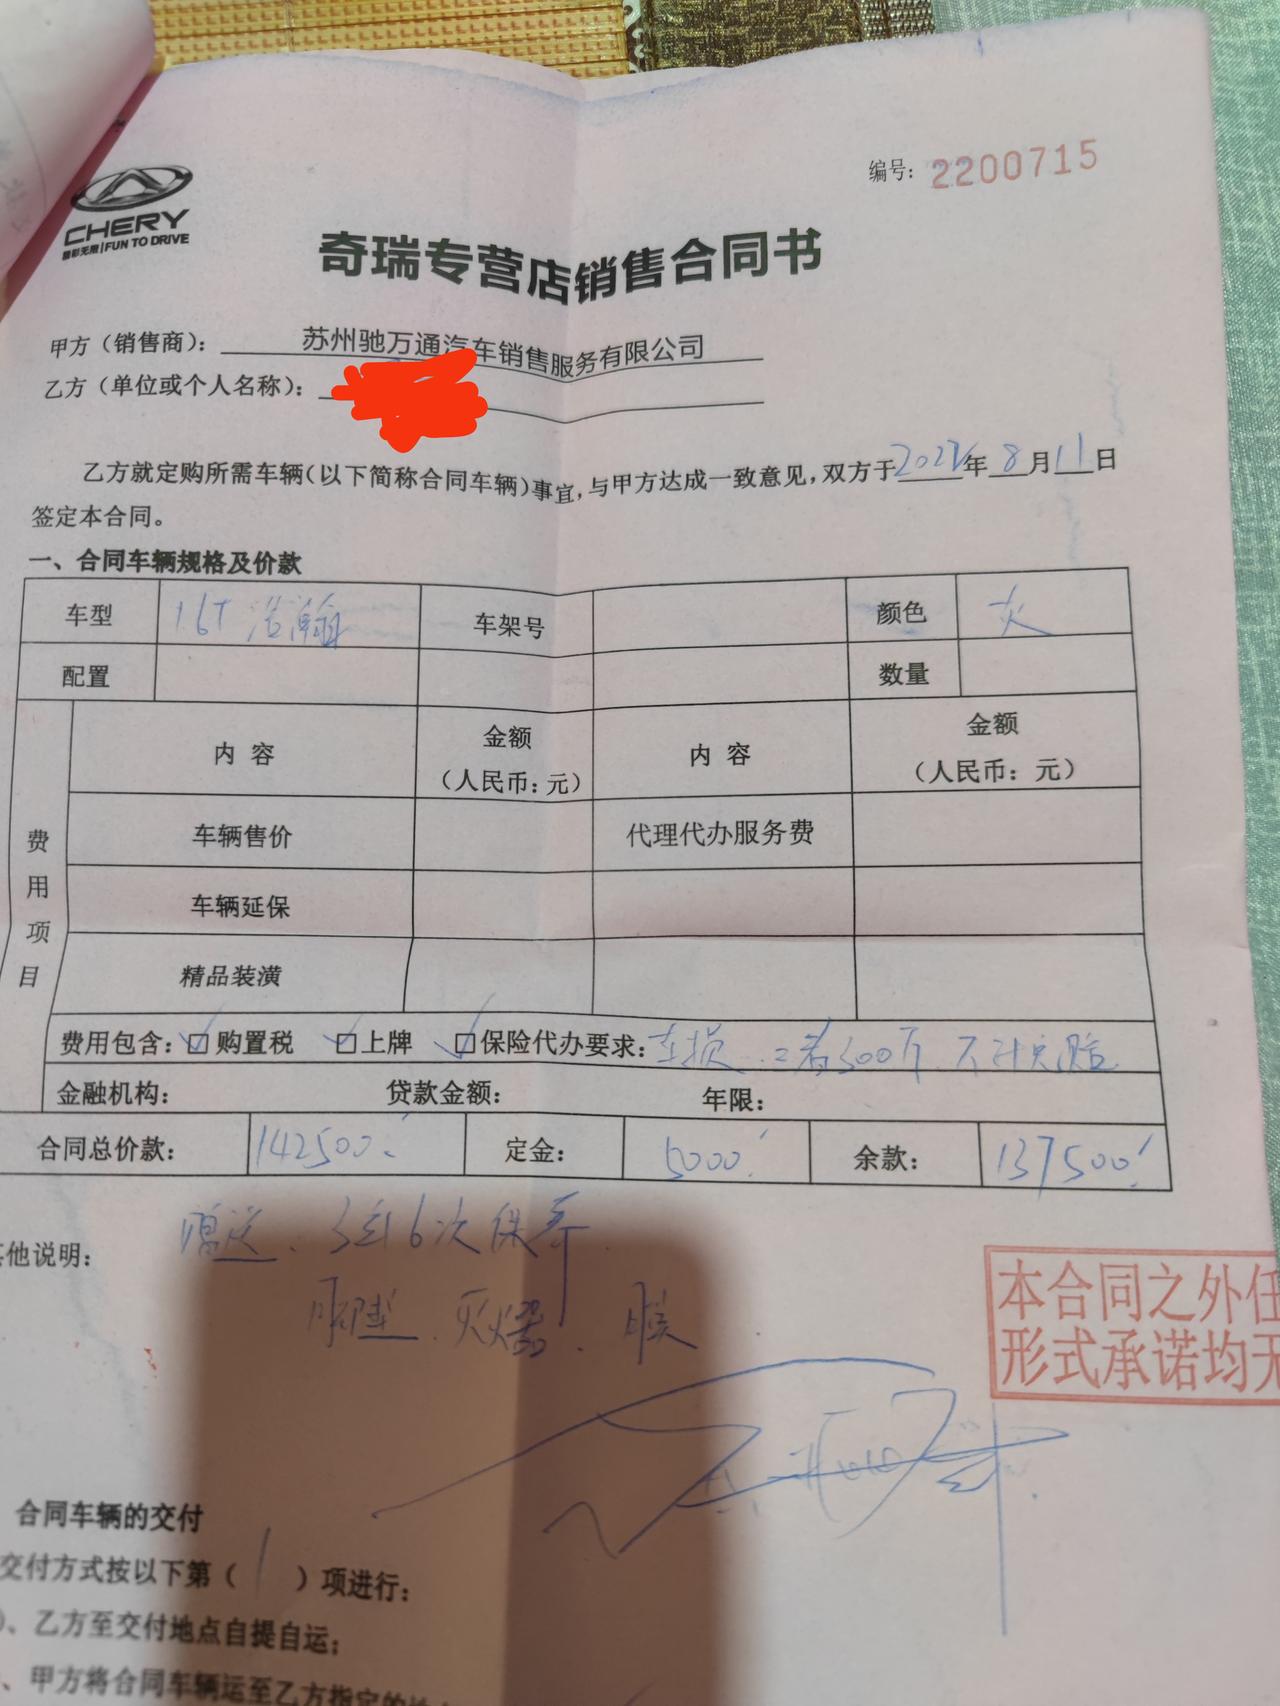 编号：2200715
CHERY
FUN TO DRIVE
奇瑞专营店销售合同书
甲方（销售商）：苏州驰万通汽车销售服务有限公司
乙方（单位或个人名称）：
乙方就定购所需车辆（以下简称合同车辆）事宜，与甲方达成一致意见，双方于2022年8月11日
签定本合同。
一、合同车辆规格及价款
车型 1.6T 浩瀚 车架号 颜色 灰
配置 数量
内容 金额（人民币：元） 内容 金额（人民币：元）
费用项目
车辆售价 代理代办服务费
车辆延保
精品装潢
费用包含：☑购置税 ☑上牌 ☑保险代办要求：车损、三者300万 不计免赔
金融机构： 贷款金额： 年限：
合同总价款： 142500 定金： 5000 余款： 137500
其他说明：赠送、3年6次保养
脚垫、灭火器、膜
本合同之外任
形式承诺均无
合同车辆的交付
交付方式按以下第（1）项进行：
、乙方至交付地点自提自运；
、甲方将合同车辆运至乙方指定的